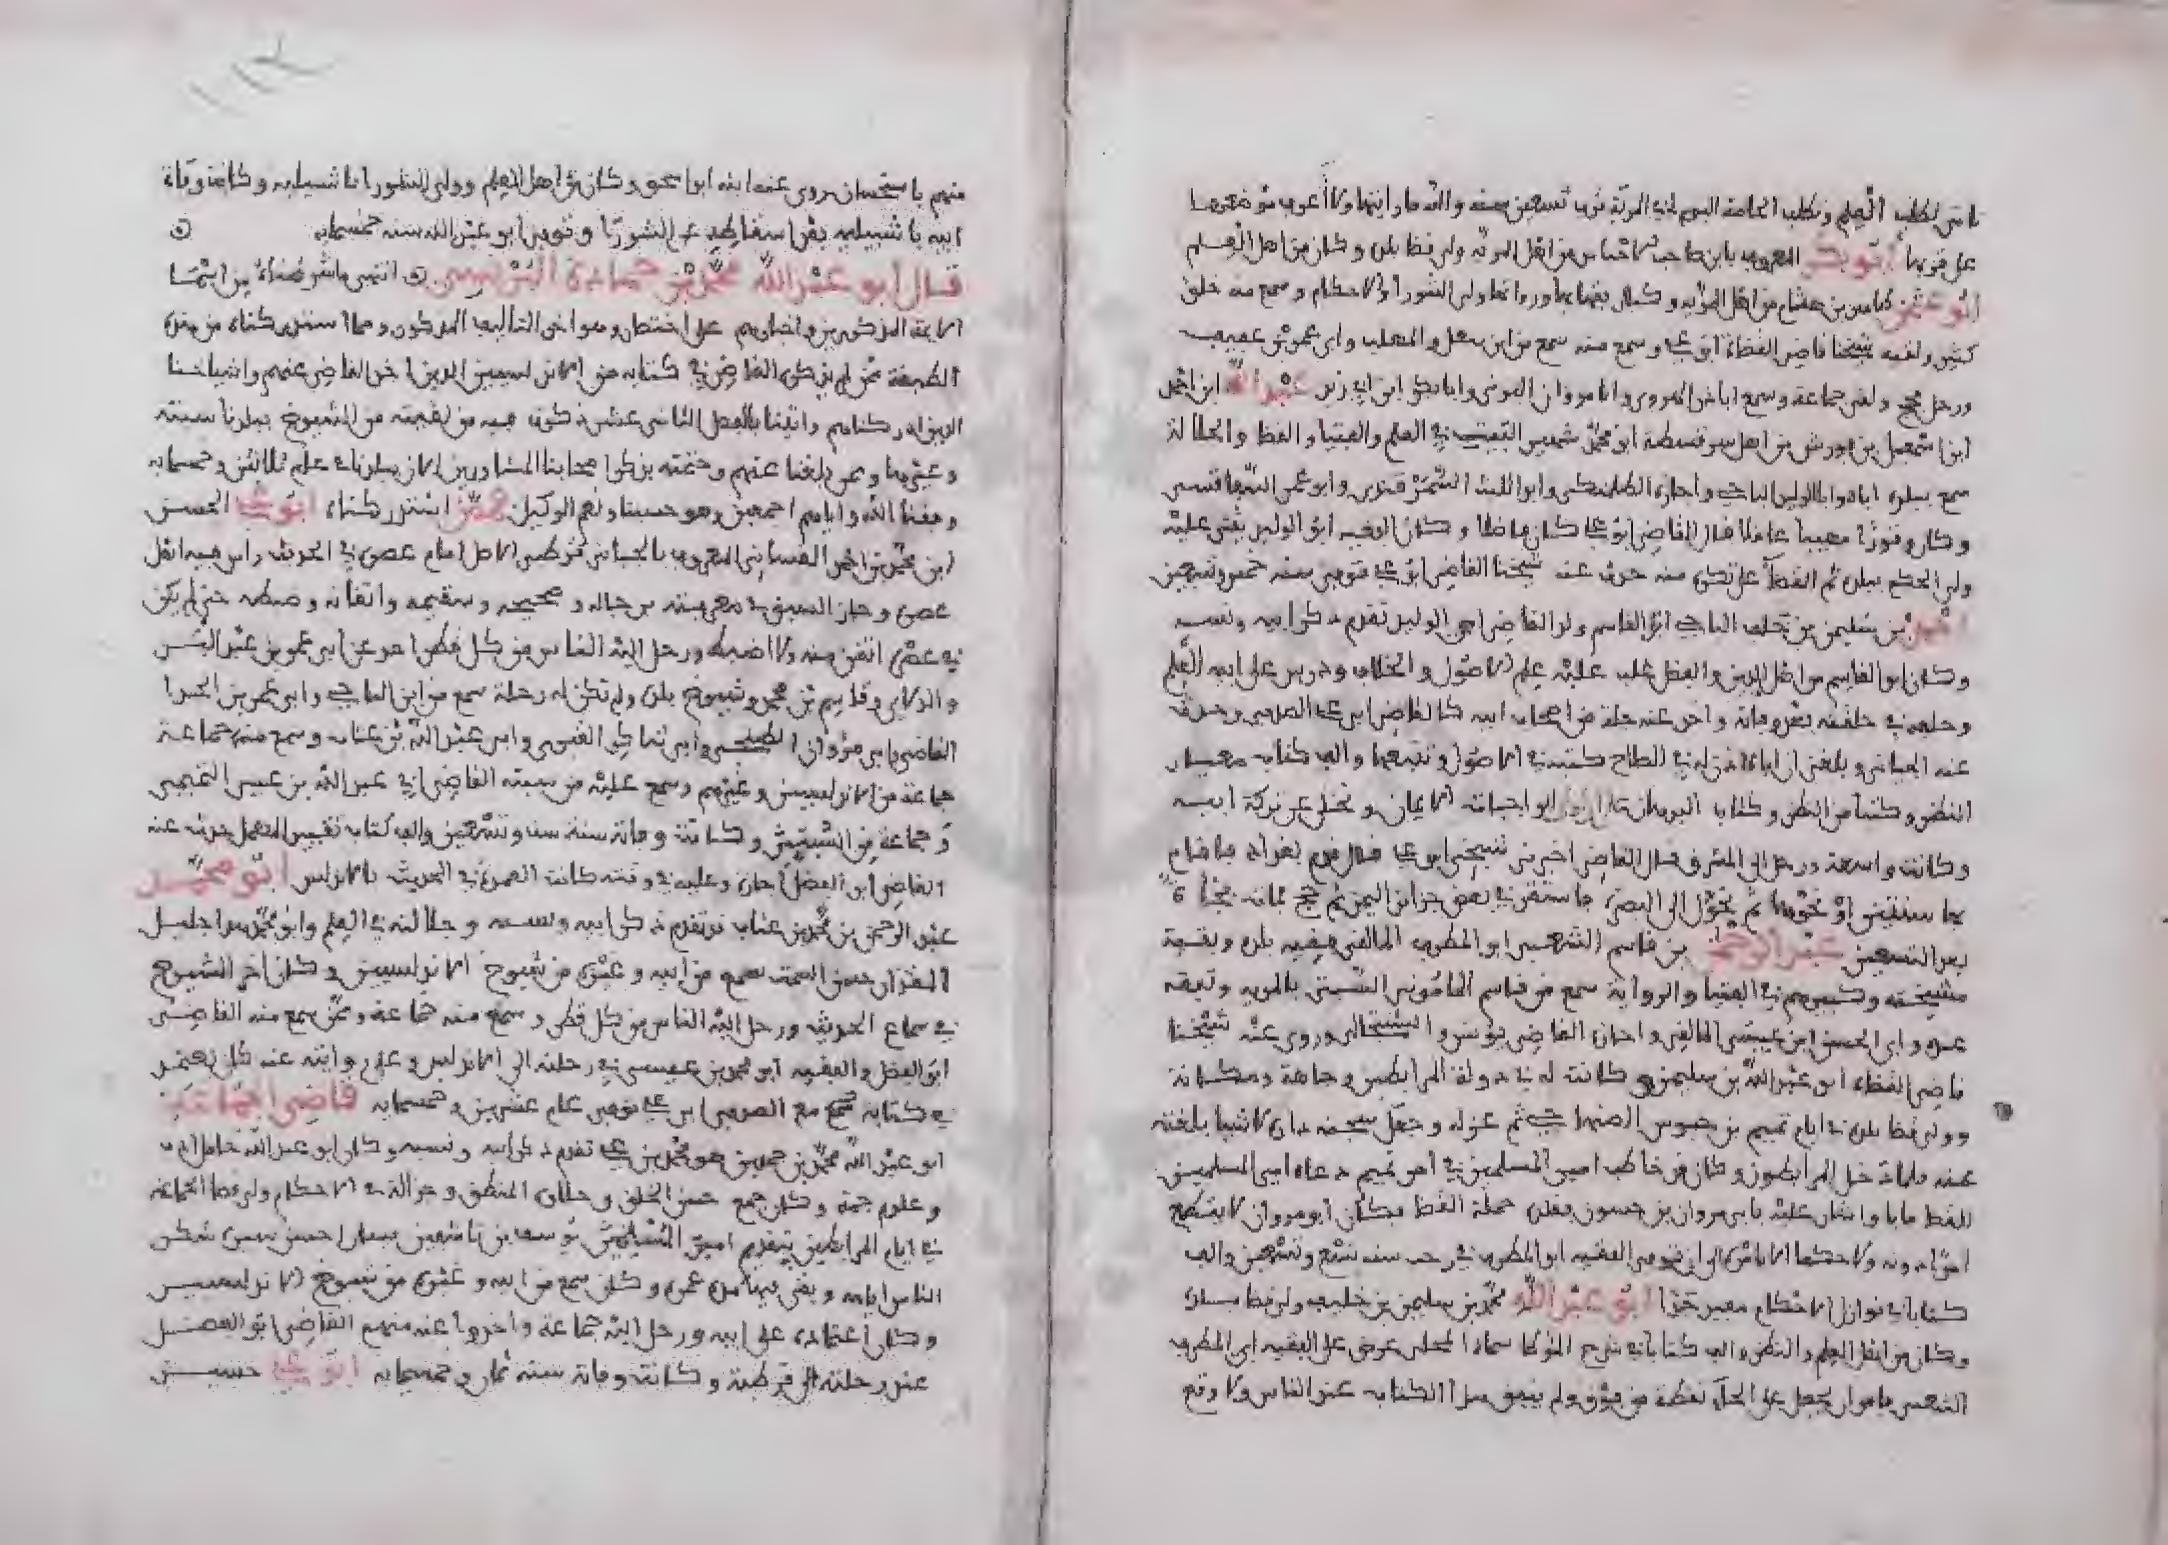 تاتي لطلب العلم وتطلب الحاجة اليوم لي المرية نرى تسعين سنة والله ما رايتها ولا اعرف موضعها
على قربها أبو بكر المعروف بابن صاحب الاحباس من اهل المرية ولي قضا بلده وكان من اهل العلم
أبو عمر بن هشام من اهل المرية وكان بها ولي الشورا والاحكام وسمع منه خلق
كثير ولقيه شيخنا قاضي القضاة ابو علي وسمع منه سمع من ابن سهل والمهلب وابي عمر بن عفيف
ورحل فحج ولقي جماعة وسمع ابا ذر الهروي وابا مروان البوني وابا بكر ابن ابي زيد عبد الله ابن احمد
ابن اسمعيل بن فورتش من اهل سرقسطة ابو محمد شهير البيت في العلم والفتيا والقضا والجلالة
سمع ببلده اباه وابا الوليد الباجي واجازه الطلمنكي وابو الليث السمرقندي وابو عمر السفاقسي
وكان وقورا مهيبا عاقلا قال القاضي ابو علي كان فاضلا وكان الفقيه ابو الوليد يثني عليه
ولي الحكم ببلده ثم القضا على تكره منه حدث عنه شيخنا القاضي ابو علي توفي سنة خمس وتسعين
احمد بن سليمن بن خلف الباجي ابو القاسم ولد القاضي ابي الوليد تقدم ذكر ابيه ونسبه
وكان ابو القاسم من اهل الدين والفضل غلب عليه علم الاصول والخلاف ودرس على ابيه العلم
وخلفه في حلقته بعد وفاته واخذ عنه جلة من اصحاب ابيه كالقاضي ابي علي الصدفي وحدث
عنه الجياني وبلغني ان اباه اذن له في اصلاح كتبه في الاصول وتتبعها والف كتاب معيار
النظر وكتاب سر النظر وكتاب البرهان على ان اول الواجبات الايمان وتخلى عن تركة ابيه
وكانت واسعة ورحل الى المشرق قال القاضي اخبرني شيخي ابو علي قال قدم بغداد فاقام
بها سنتين او نحوهما ثم تحول الى البصرة فاستقر في بعض جزائر اليمن ثم حج فمات بجدة
بعد التسعين عبد الرحمن بن قاسم الشعبي ابو المطرف المالقي فقيه بلده وبقية
مشيخته وكبيرهم في الفتيا والرواية سمع من قاسم الماموني السبتي بالمرية وتفقه
عنده وابي الحسن ابن عيسى المالقي واجازه القاضي يونس والشنتجالي وروى عنه شيخنا
قاضي القضاة ابو عبد الله بن سليمن وكانت له في دولة المرابطين وجاهة ومكانة
وولي قضا بلده في ايام تميم بن حبوس الصنهاجي ثم عزله وجعل سجنه داره لاشيا بلغته
عنه فلما دخل المرابطون وكان قد خاطب امير المسلمين في امر تميم دعاه امير المسلمين
للقضا فابا واشار عليه بابي مروان بن حسون فقلده خطة القضا فكان ابو مروان لا يقطع
امرا دونه ولا حكما الا باذنه الى ان توفي الفقيه ابو المطرف في رجب سنة تسع وتسعين والف
كتابا في نوازل الاحكام مفيد جدا أبو عبد الله محمد بن سليمن بن خليفة ولي قضا بلده
وكان من اهل العلم والنظر والف كتابا في شرح الموطا سماه المحلى عرض على الفقيه ابي المطرف
الشعبي فامر ان يجعل على الحاء نقطة من فوق ولم ينفق هذا الكتاب عند الناس ولا وقع
منهم باستحسان روى عنه ابنه ابو اسحق وكان من اهل العلم وولي الشورا باشبيلية وكانت وفاة
ابيه باشبيلية بعد اسقاطه عن الشورا وتوفي ابو عبد الله سنة خمسماية
قال أبو عبد الله محمد بن حمادة البرنسي انتهى ما شرطناه من اثبات
الائمة المذكورين واخبارهم على اختصار وهو اخر التاليف المذكور ومما استدركناه من هذه
الطبقة ممن لم يذكره القاضي في كتابه من الاندلسيين الذين اخذ القاضي عنهم واشياخنا
الذين ادركناهم واتينا بالفصل الثاني عشر ذكرت فيه من لقيته من الشيوخ ببلدنا سبتة
وغيرها ومن بلغنا عنهم وختمته بذكر اصحابنا المشاورين الان ببلدنا عام ثلاثين وخمسماية
وفقنا الله واياهم اجمعين وهو حسبنا ونعم الوكيل فممن استدركناه أبو علي الحسين
ابن محمد بن احمد الغساني المعروف بالجياني قرطبي الاصل امام عصره في الحديث راس فيه اهل
عصره وحاز السبق في معرفته برجاله وصحيحه وسقيمه واتقانه وضبطه حتى لم يكن
في عصره اتقن منه ولا اضبط ورحل اليه الناس من كل قطر اخذ عن ابي عمر بن عبد البر
والدلاي وقاسم بن محمد وشيوخ بلده ولم تكن له رحلة سمع من ابن الباجي وابي عمر بن الحذا
القاضي وابي مروان الطبني وابي شاكر القبري وابي عبد الله بن عتاب وسمع منه جماعة
جماعة من الاندلسيين وغيرهم وسمع عليه من سبتة القاضي ابي عبد الله بن عيسى التميمي
وجماعة من السبتيين وكانت وفاته سنة ست وتسعين والف كتاب تقييد المهمل حدث عنه
القاضي ابو الفضل اجازة وعليه في وقته كانت العمدة في الحديث بالاندلس أبو محمد
عبد الرحمن بن محمد بن عتاب قد تقدم ذكر ابيه ونسبه وجلالته في العلم وابو محمد هذا جليل
المقدار حسن السمت سمع من ابيه وغيره من شيوخ الاندلسيين وكان اخر الشيوخ
في سماع الحديث ورحل اليه الناس من كل قطر وسمع منه جماعة وممن سمع منه القاضي
ابو الفضل والفقيه ابو محمد بن عيسى في رحلته الى الاندلس وعلى روايته عنه كان يعتمد
في كتابه مع الصدفي ابي علي توفي عام عشرين وخمسماية قاضي الجماعة
ابو عبد الله محمد بن حمدين هو محمد بن علي تقدم ذكر ابيه ونسبه وكان ابو عبد الله حامل ادب
وعلوم جمة وكان جمع حسن الخلق وحلاوة المنطق وجزالة في الاحكام ولي قضا الجماعة
في ايام المرابطين بتقديم امير المسلمين يوسف بن تاشفين فسار احسن سيرة شكر
الناس ايامه وبقي فيها مدة عمره وكان سمع من ابيه وغيره من شيوخ الاندلسيين
وكان اعتماده على ابيه ورحل اليه جماعة واخذوا عنه منهم القاضي ابو الفضل
عند رحلته الى قرطبة وكانت وفاته سنة ثمان وخمسماية أبو علي حسين